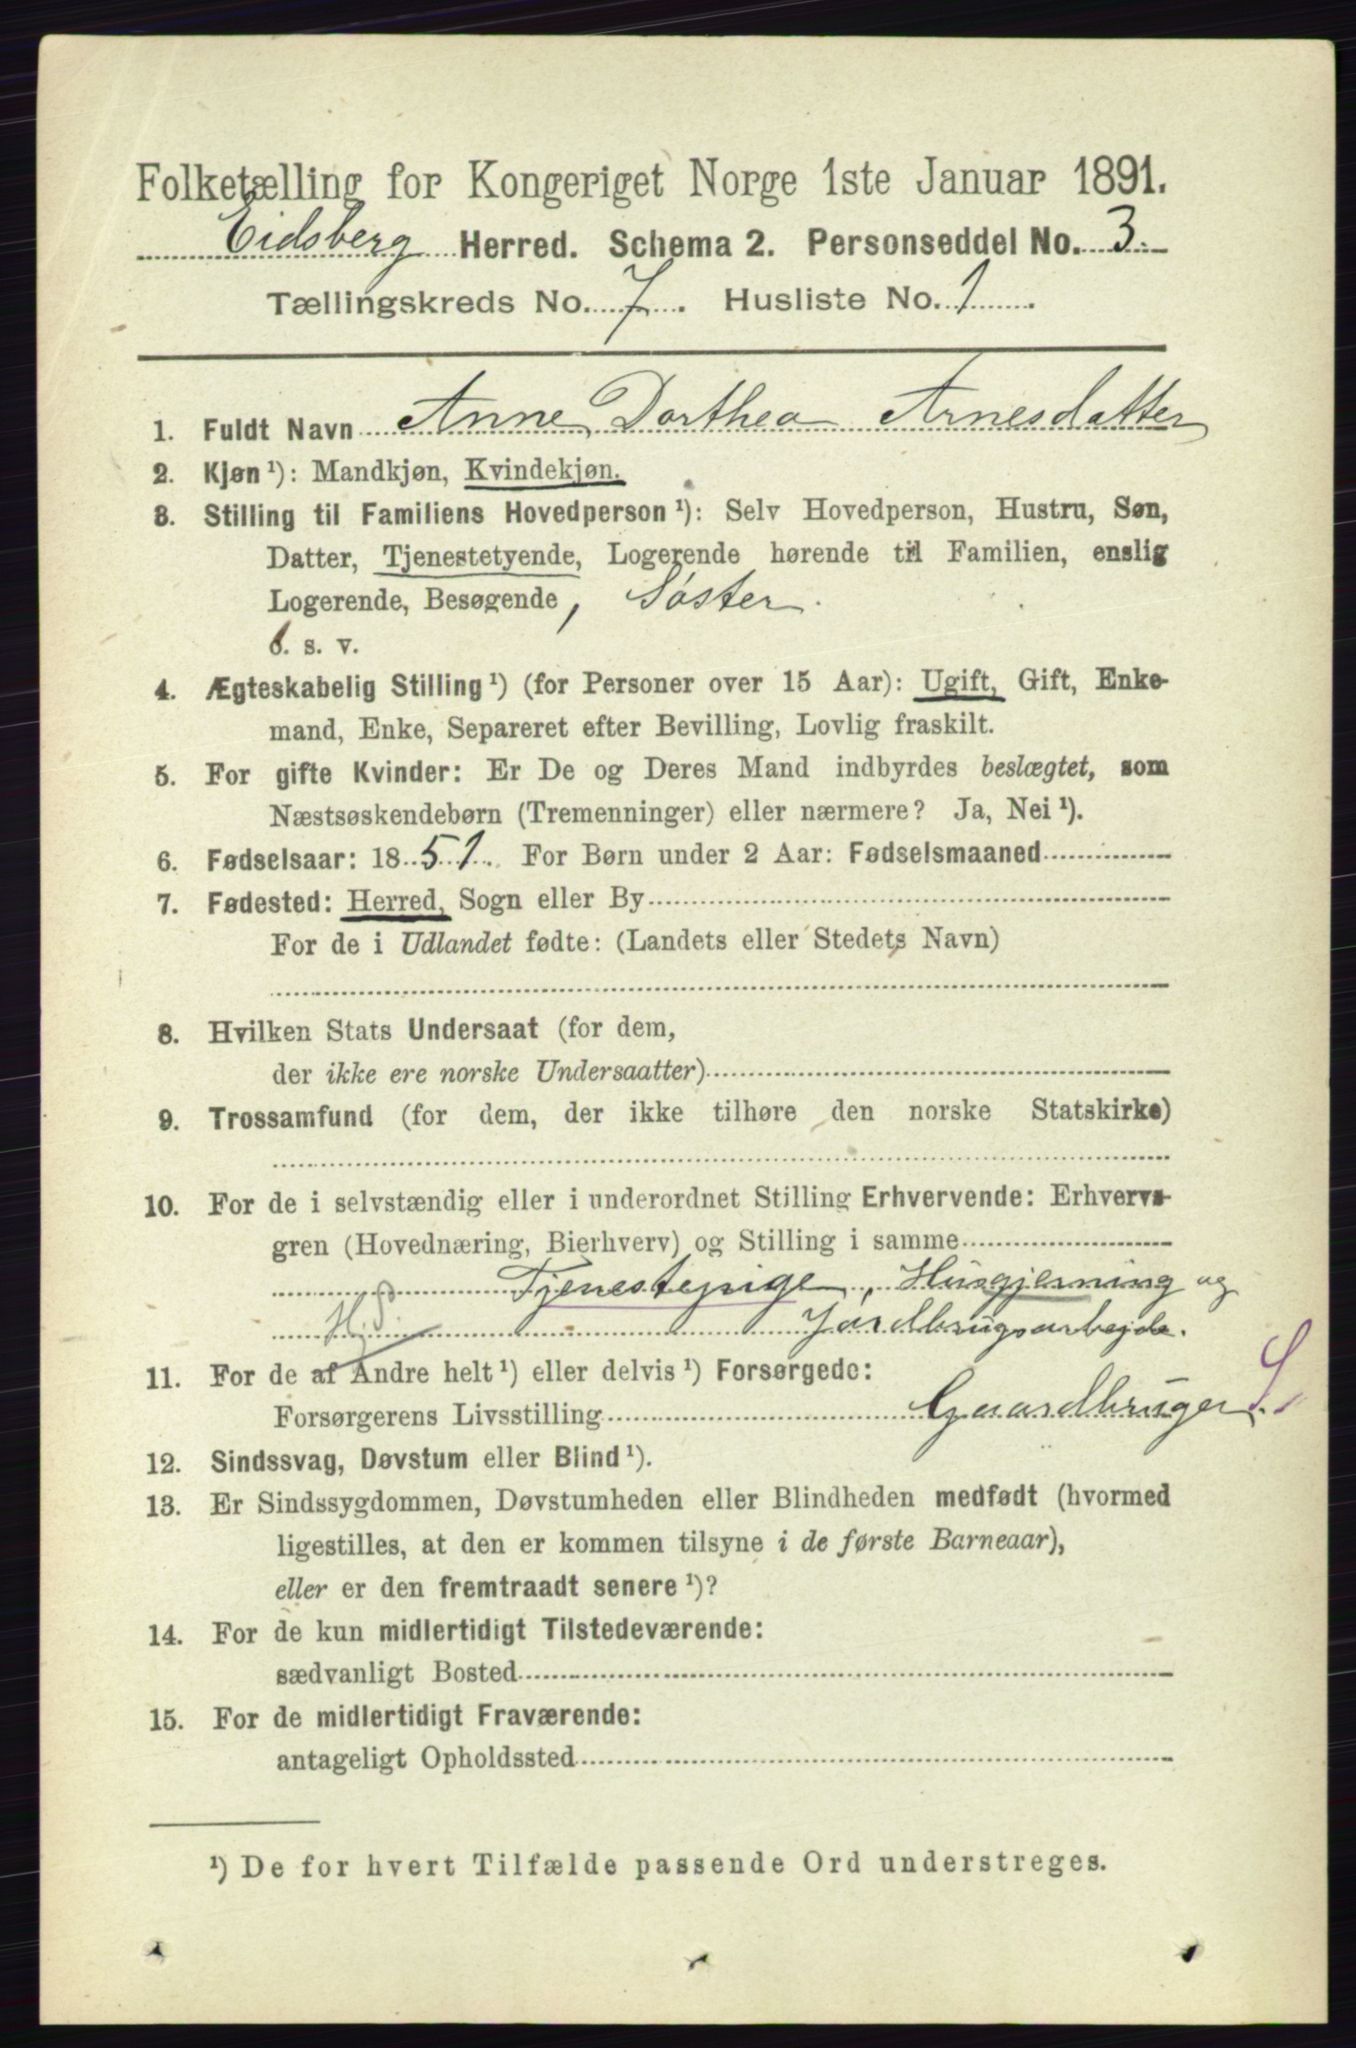 Folketælling for Kongeriget Norge 1ste Januar 1891.
Eidsberg Herred. Schema 2. Personseddel No. 3.
Tællingskreds No. 7. Husliste No. 1
1. Fuldt Navn Anne Dorthea Arnesdatter
2. Kjøn ¹): Mandkjøn, Kvindekjøn.
3. Stilling til Familiens Hovedperson ¹): Selv Hovedperson, Hustru, Søn,
Datter, Tjenestetyende, Logerende hørende til Familien, enslig
Logerende, Besøgende, Søster.
o. s. v.
4. Ægteskabelig Stilling ¹) (for Personer over 15 Aar): Ugift, Gift, Enke-
mand, Enke, Separeret efter Bevilling, Lovlig fraskilt.
5. For gifte Kvinder: Er De og Deres Mand indbyrdes beslægtet, som
Næstsøskendebørn (Tremenninger) eller nærmere? Ja, Nei ¹).
6. Fødselsaar: 1851. For Børn under 2 Aar: Fødselsmaaned
7. Fødested: Herred, Sogn eller By
For de i Udlandet fødte: (Landets eller Stedets Navn)
8. Hvilken Stats Undersaat (for dem,
der ikke ere norske Undersaatter)
9. Trossamfund (for dem, der ikke tilhøre den norske Statskirke)
10. For de i selvstændig eller i underordnet Stilling Erhvervende: Erhvervs-
gren (Hovednæring, Bierhverv) og Stilling i samme
Tjenestepige, Husgjerning og
Jordbrugsarbejde.
11. For de af Andre helt ¹) eller delvis ¹) Forsørgede:
Forsørgerens Livsstilling Gaardbruger.
12. Sindssvag, Døvstum eller Blind ¹).
13. Er Sindssygdommen, Døvstumheden eller Blindheden medfødt (hvormed
ligestilles, at den er kommen tilsyne i de første Barneaar),
eller er den fremtraadt senere ¹)?
14. For de kun midlertidigt Tilstedeværende:
sædvanligt Bosted
15. For de midlertidigt Fraværende:
antageligt Opholdssted
¹) De for hvert Tilfælde passende Ord understreges.